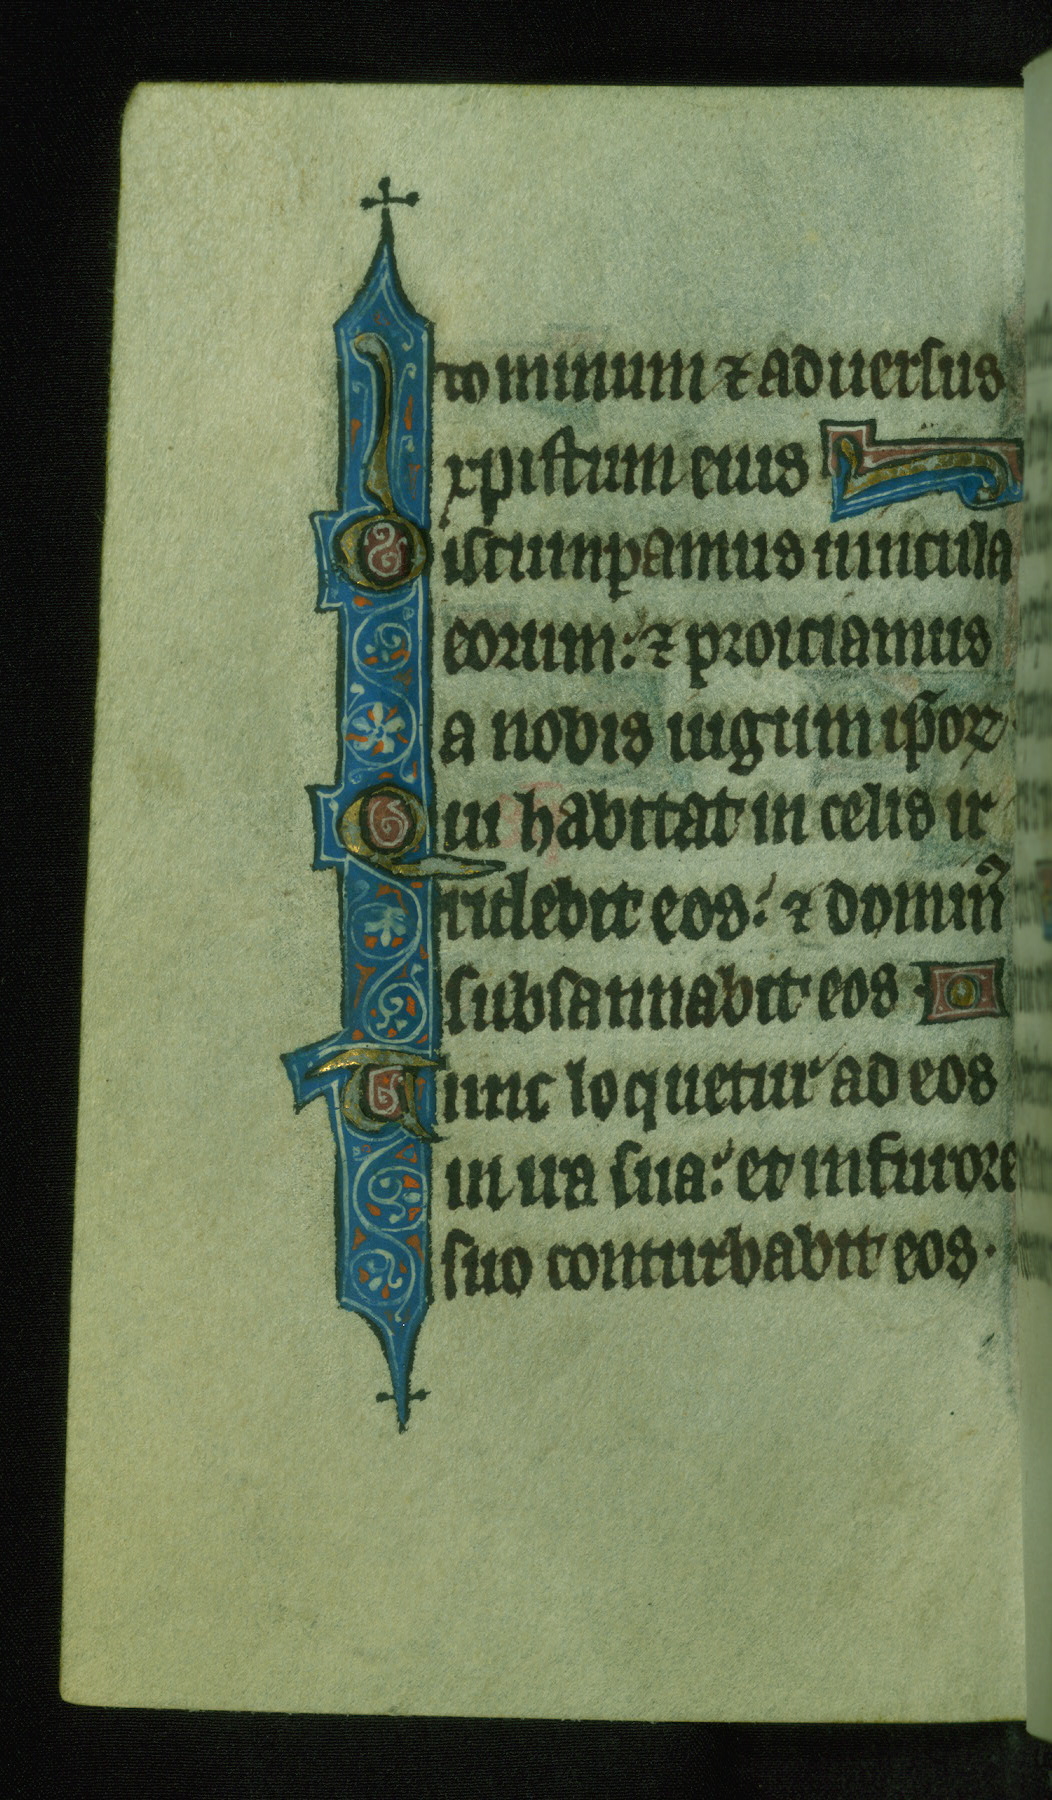 dominum ⁊ aduersus
xpistum eius
Disrumpamus uincula
eorum: ⁊ proiciamus
a nobis iugum ip̄oꝝ
Qui habitat in celis ir
ridebit eos: ⁊ dominꝰ
subsannabit eos
Tunc loquetur ad eos
in ira sua: et in furore
suo conturbabit eos.